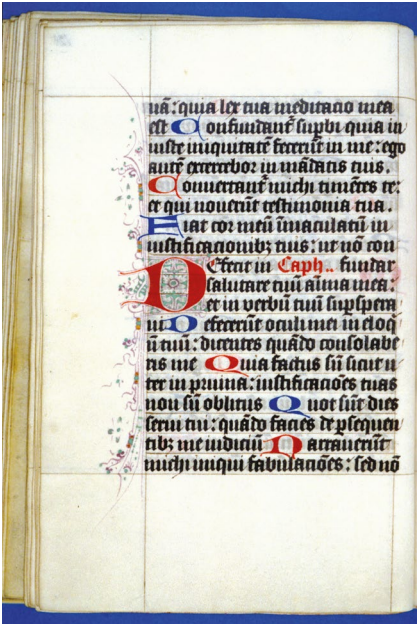 uā: quia lex tua meditacio mea
est Confundant᷑ sup̄bi quia in
iuste iniquitatē fecerūt in me: ego
autē exercebor in mādatis tuis.
Conuertant᷑ michi timētes te:
et qui nouerūt testimonia tua.
Fiat cor meū īmaculatū in
iustificacionibꝫ tuis: ut nō con
Defecit in Caph.. fundar
salutare tuū aīma mea:
et in verbū tuū sup̄spera
ui Defecerūt oculi mei in eloq̄
ū tuū: dicentes quādo consolabe
ris me Quia factus sū sicut u
ter in pruina: iustificacōes tuas
non sū oblitus Quot sūt dies
serui tui: quādo facies de ꝑsequen
tibꝫ me iudiciū Narrauerūt
michi iniqui fabulacōes: sed nō